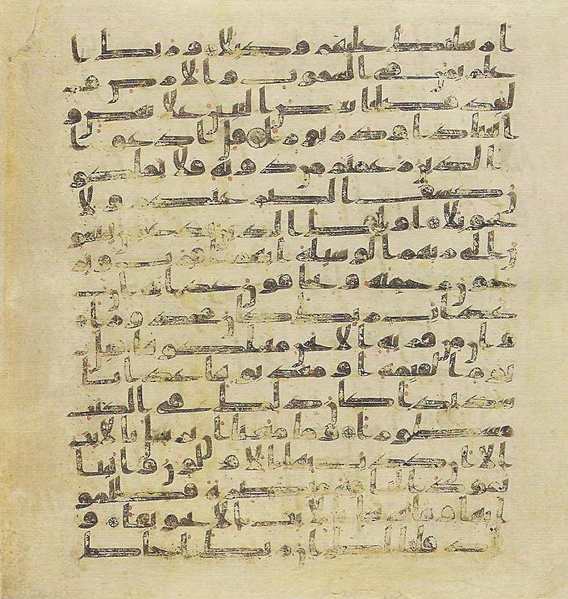 ارسلنك عليهم وكيلا وربك ا
علم بمن في السموت والارض و
لقد فضلنا بعض النبين على بعض و
اتينا داود زبورا قل ادعوا
الذين زعمتم من دونه فلا يملكو
ن كشف الضر عنكم ولا
تحويلا اولئك الذين يدعون يبتغو
ن الى ربهم الوسيلة ايهم اقرب وير
جون رحمته ويخافون عذابه ان
عذاب ربك كان محذورا و
ان من قرية الا نحن مهلكوها قبل
يوم القيمة او معذبوها عذابا
شديدا كان ذلك في الكتب
مسطورا وما منعنا ان نرسل بالايت
الا ان كذب بها الاولون واتينا
ثمود الناقة مبصرة فظلموا
بها وما نرسل بالايت الا تخويفا و
اذ قلنا لك ان ربك احاط